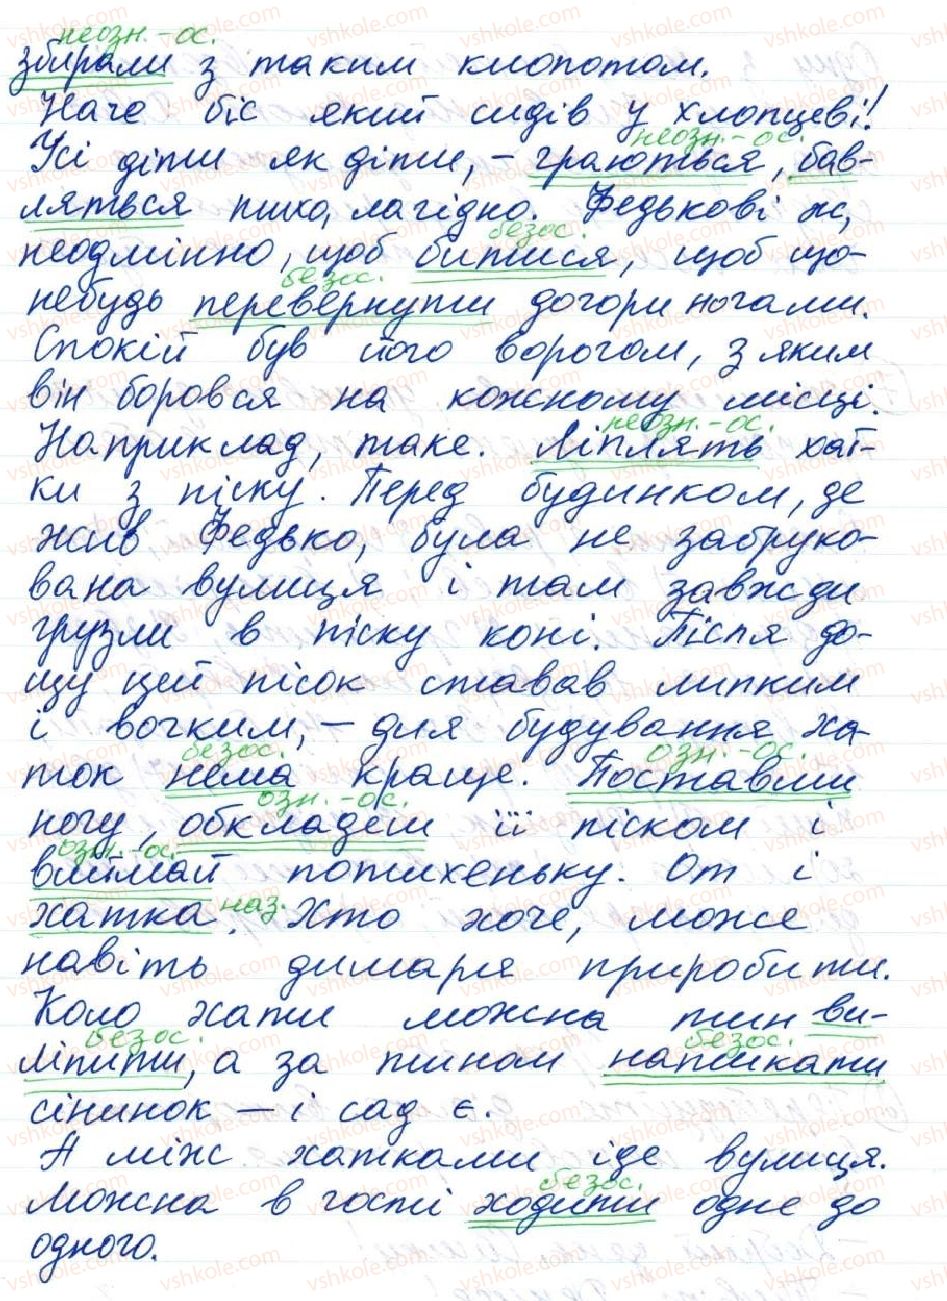 неозн.-ос.
збирали з таким клопотом.
Наче біс який сидів у хлопцеві!
неозн.-ос.
Усі діти як діти, – граються, бав-
ляться тихо, лагідно. Федькові ж,
безос.
неодмінно, щоб битися, щоб що-
безос.
небудь перевернути догори ногами.
Спокій був його ворогом, з яким
він боровся на кожному місці.
неозн.-ос.
Наприклад, таке. Ліплять хат-
ки з піску. Перед будинком, де
жив Федько, була не забруко-
вана вулиця і там завжди
грузли в піску коні. Після до-
щу цей пісок ставав липким
і вогким, – для будування ха-
безос. озн.-ос.
ток нема краще. Поставиш
озн.-ос.
ногу, обкладеш її піском і
озн.-ос.
виймай потихеньку. От і
хатка. наз. Хто хоче, може
навіть димаря приробити.
Коло хати можна тин ви-
безос. безос.
ліпити, а за тином натикати
сінинок – і сад є.
А між хатками іде вулиця.
безос.
Можна в гості ходити одне до
одного.